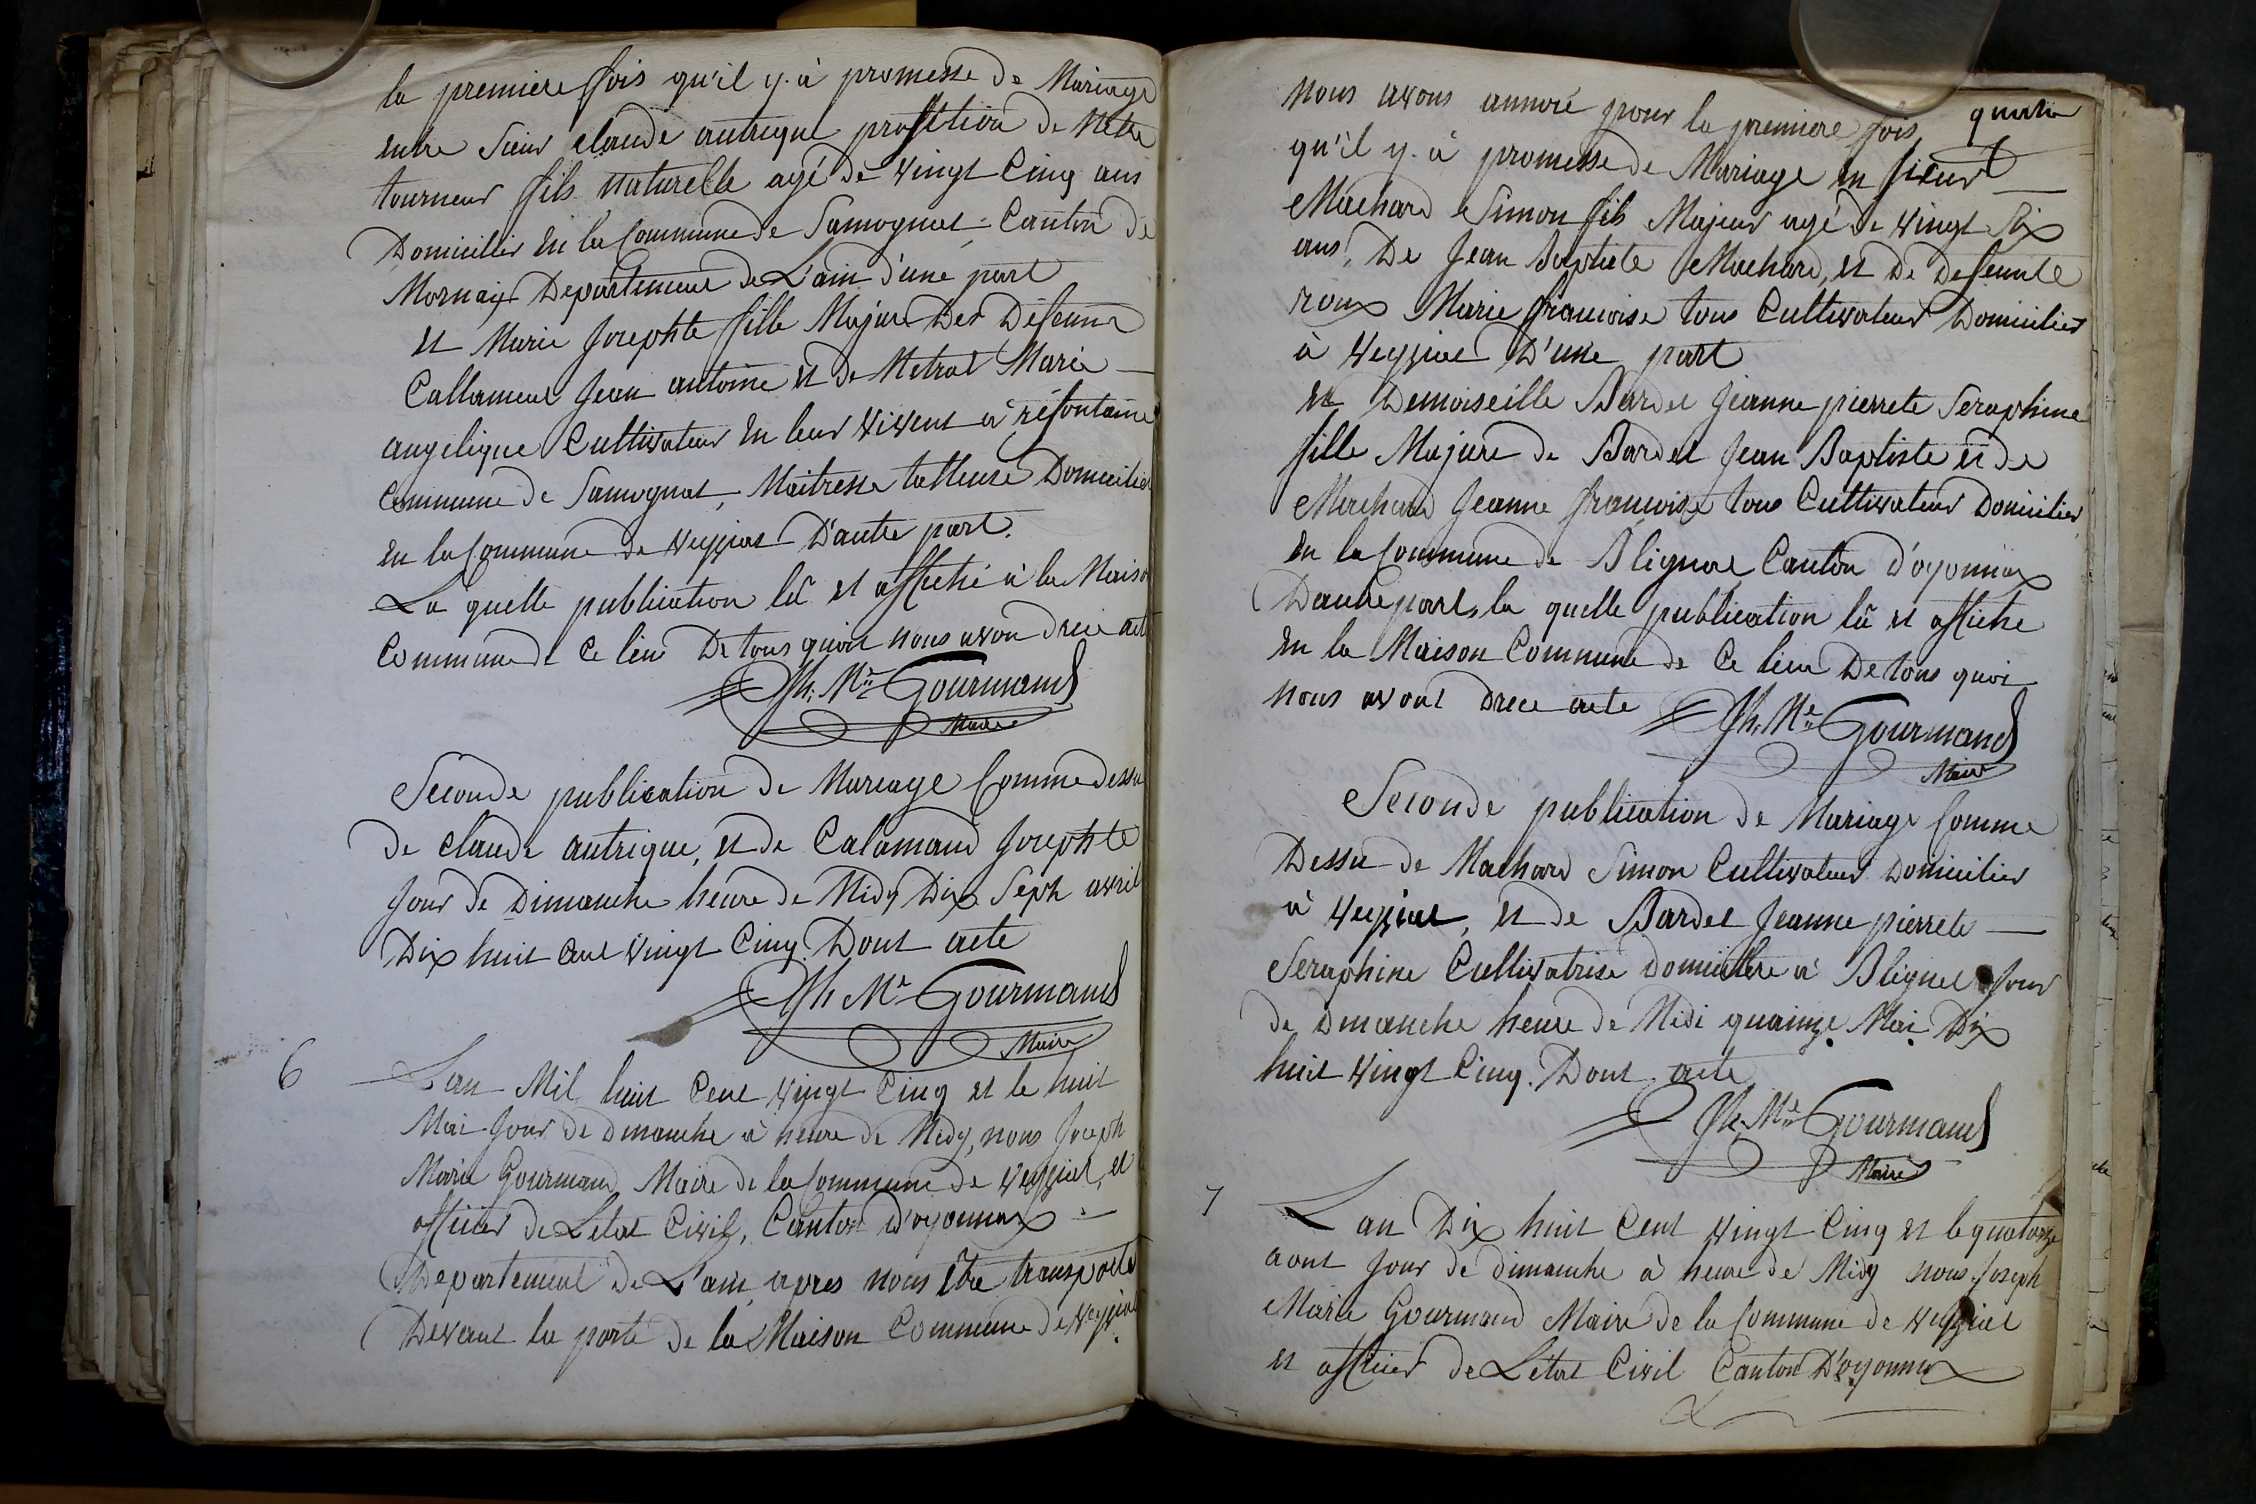 la premiere fois qu'il y à promesse de Mariage
entre Sieur claude autrique profétion de Mètre
tourneur fils naturelle agé de vingt Cinq ans
Domicillier En la Commune de Samognat, Canton de
Mornay Departement de L'ain d'une part
et Marie Josephte fille Majure Des Defeunt
Callamend Jean antoine et de Metral Marie
angelique Cultivateur En leur vivent à résfontaine
Commune de Samognat, Maitresse talleuse Domicilié
en la Commune de veyziat D'autre part.
La quelle publication lû et affiché à la Maison
Commune de Ce lieu De tous quoit nous avon drece acte
Jh. Mie Gourmand
Maire
Seconde publication de Mariage Comme dessu
de claude autrique, et de Calamand Josephte
Jour de Dimanche heure de Midy Dix Seph avril
Dix huit cent vingt Cinq. Dont acte
Jh Mie Gourmand
Maire
6
Lan Mil huit Cent vingt Cinq et le huit
Mai Jour de dmanche à heure de Midy, nous Joseph
Marie Gourmand Maire de la Commune de Veyziat, et
officier de Létat Civil, Canton D'oyonnax =
Departement de L'ain, apres nous être transporté
Devant la porte de la Maison Commune de veyziat
quatre
nous avons annoté pour la premiere fois
qu'il y à promesse de Mariage en sieur
Machard Simon fils Majeur agé de vingt Six
ans, De Jean Baptiste Machard, et De defeunte
roux Marie francoise tous Cultivateur Domicilier
à veyziat D'une part
et Demoiseille Bardet Jeanne pierrete Seraphine
fille Majure de Bardet Jean Baptiste et de
Machard Jeanne francoise tous Cultivateur Domicilier
En la Commune de Blignat Canton d'oyonnax
Dautre part, la quelle publication lû et affiche
en la Maison Commune de Ce lieu De tous quoi
nous avont drece acte
Jh. Mie Gourmand
Maire
Seconde publication de Mariage Comme
Dessu de Machard Simon Cultivateur Domicilier
à Veyziat, et de Bardet Jeanne pierrete
Seraphine Cultivatrise domicillere à Blignet Jour
de Dmanche heure de Midi quainze Mai Dix
huit vingt Cinq. Dont acte
Jh. Mie Gourmand
Maire
7
Lan Dix huit Cent vingt Cinq et le quatorze
aout Jour de dimanche à heure de Midy nous Joseph
Marie Gourmand Maire de la Commune de Veyziat
et officier de Létat Civil Canton D'oyonnax